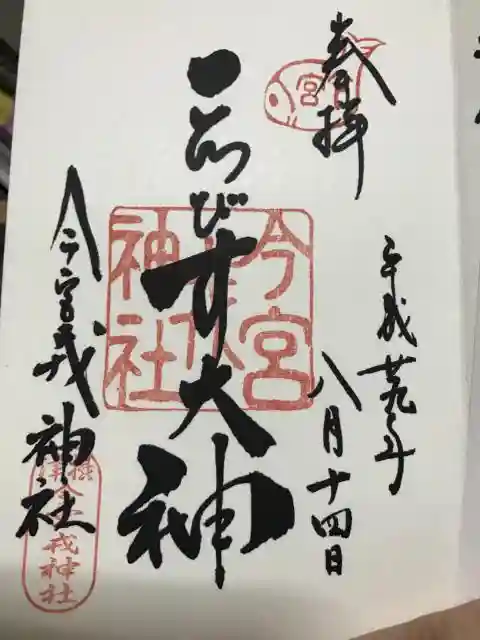 奉拝
平成廿九年
八月十四日
ゑびす大神
今宮戎神社
今宮
神社
今宮戎神社